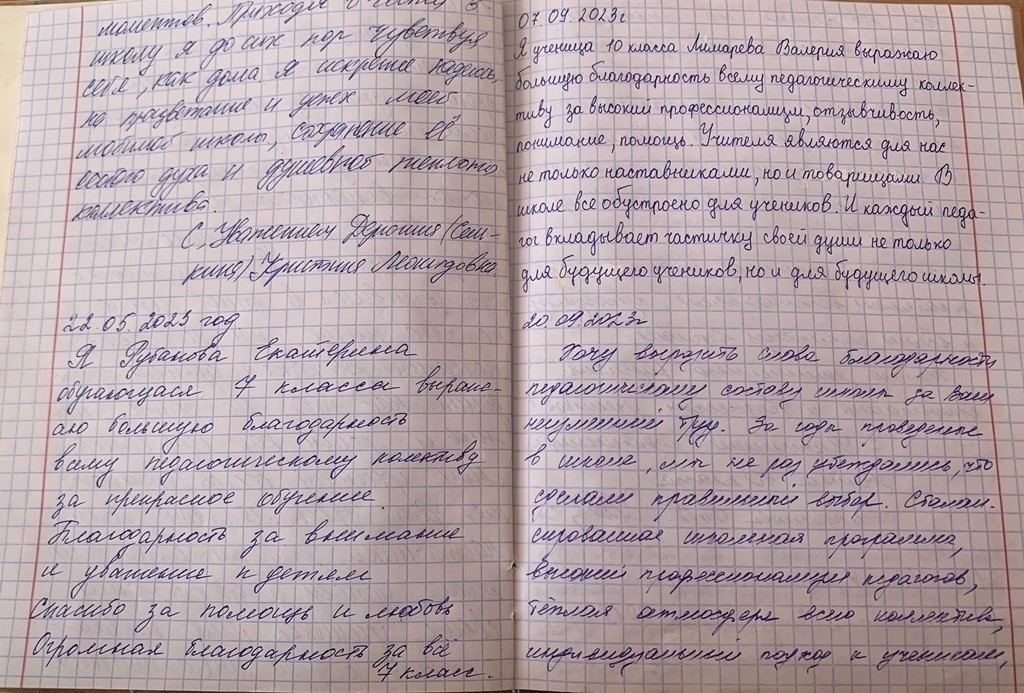 моментов. Приходя в гости в
школу я до сих пор чувствую
себя, как дома. Я искренне надеюсь
на процветание и успех моей
любимой школы, сохранение её
особого духа и душевной теплоты
коллектива.
С Уважением Доронина/Сем-
кина/ Кристина Леонидовна
22.05.2023 год.
Я Рубанова Екатерина
обучающаяся 7 класса выраж-
аю большую благодарность
всему педагогическому колективу
за прекрасное обучение.
Благодарность за внимание
и уважение к детям
Спасибо за помощь и любовь
Огромная благодарность за всё
7 класс.
07.09.2023г
Я ученица 10 класса Лимарева Валерия выражаю
большую благодарность всему педагогическому коллек-
тиву за высокий профессионализм, отзывчивость,
понимание, помощь. Учителя являются для нас
не только наставниками, но и товарищами В
школе все обустроено для учеников. И каждый педа-
гог вкладывает частичку своей души не только
для будущего учеников, но и для будущего школы.
20.09.2023г
Хочу выразить слова благодарности
педагогическому составу школы за Ваш
неуменний труд. За годы проведеные
в школе, мы не раз убеждались, что
сделали правильный выбор. Сбалан-
сированная школьная программа,
высокий профессионализм педагогов,
тёплая атмосфера всего коллектива,
индивидуальный подход к ученикам,